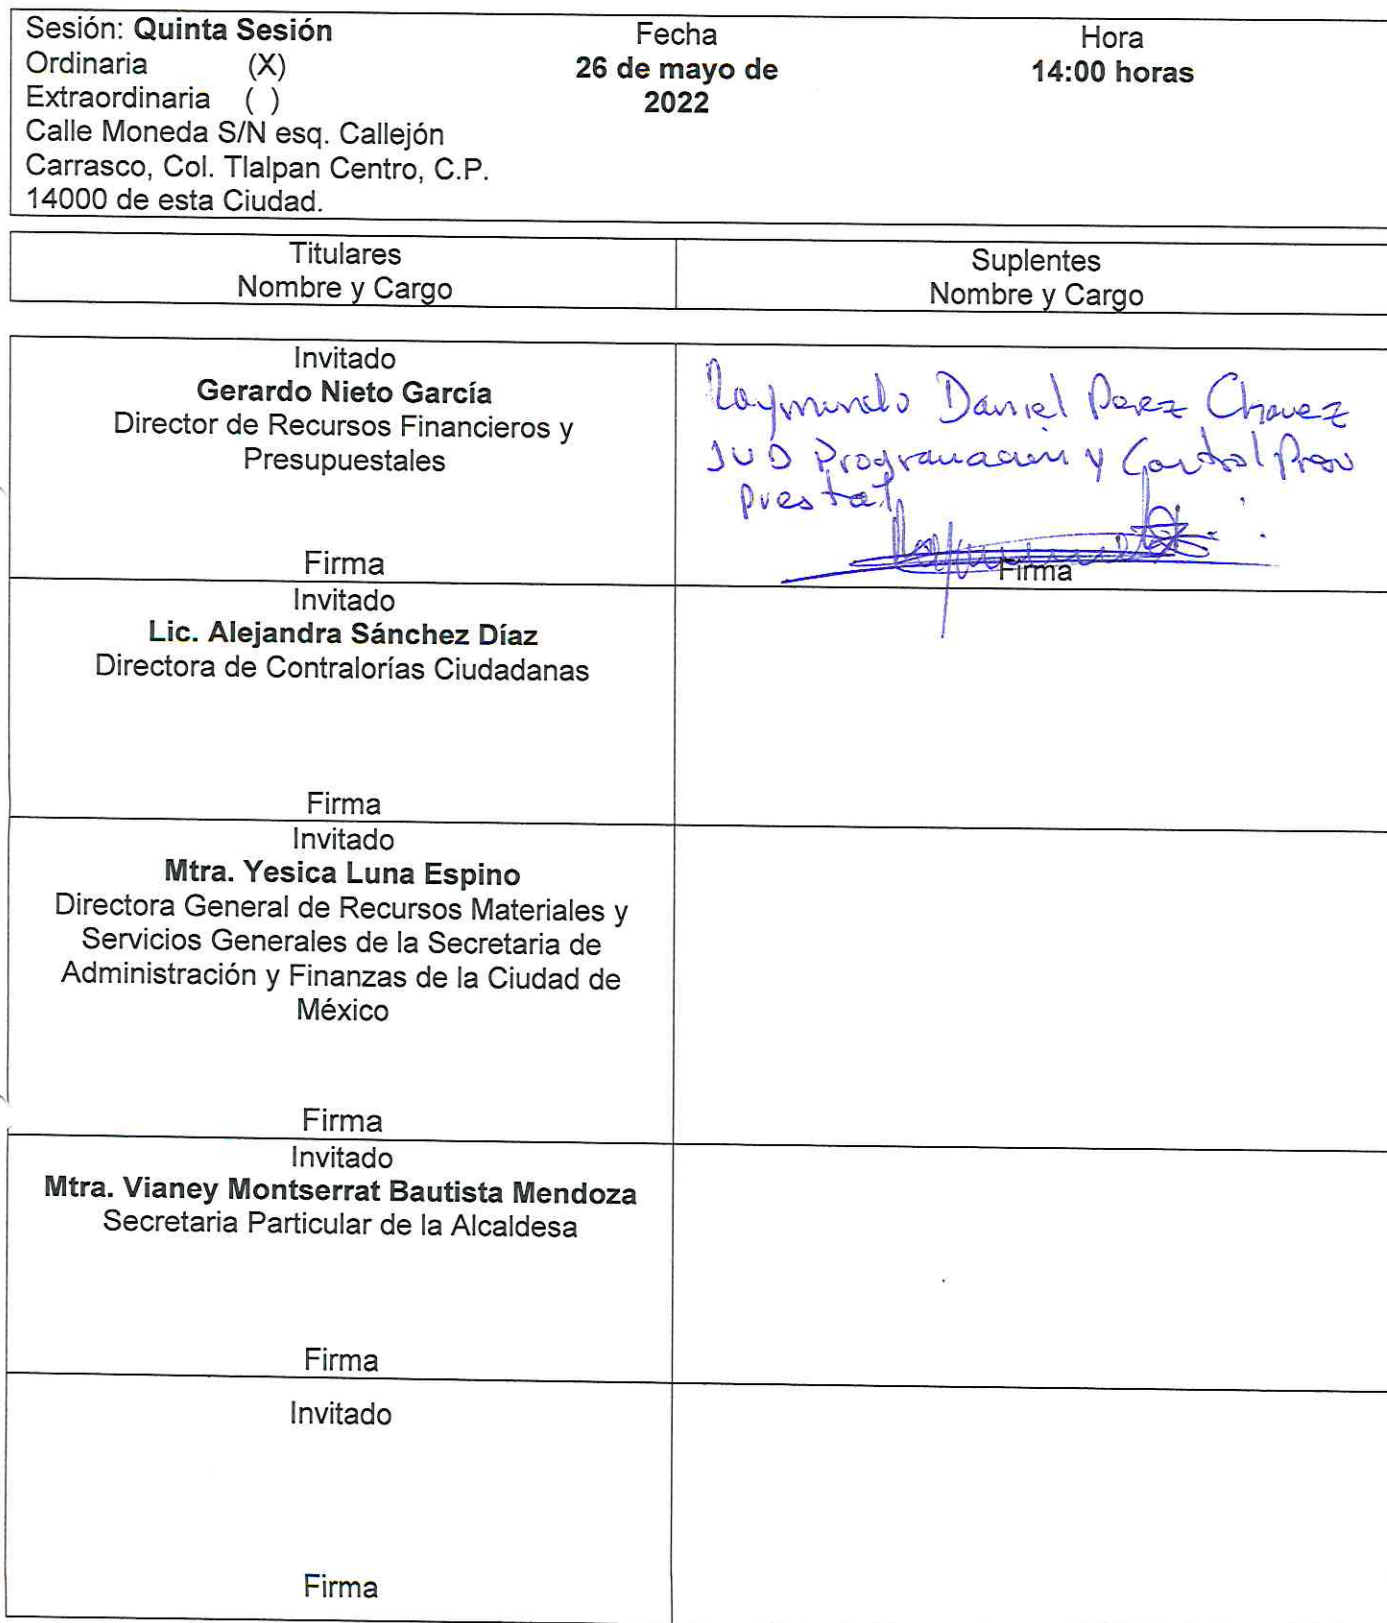 Sesión: Quinta Sesión
Ordinaria (X)
Extraordinaria ( )
Calle Moneda S/N esq. Callejón
Carrasco, Col. Tlalpan Centro, C.P.
14000 de esta Ciudad.
Fecha
26 de mayo de
2022
Hora
14:00 horas
Titulares
Nombre y Cargo
Suplentes
Nombre y Cargo
Invitado
Gerardo Nieto García
Director de Recursos Financieros y
Presupuestales
Firma
Raymundo Daniel Perez Chavez
JUD Programación y Control Presu
puestal
Firma
Invitado
Lic. Alejandra Sánchez Díaz
Directora de Contralorías Ciudadanas
Firma
Invitado
Mtra. Yesica Luna Espino
Directora General de Recursos Materiales y
Servicios Generales de la Secretaria de
Administración y Finanzas de la Ciudad de
México
Firma
Invitado
Mtra. Vianey Montserrat Bautista Mendoza
Secretaria Particular de la Alcaldesa
Firma
Invitado
Firma